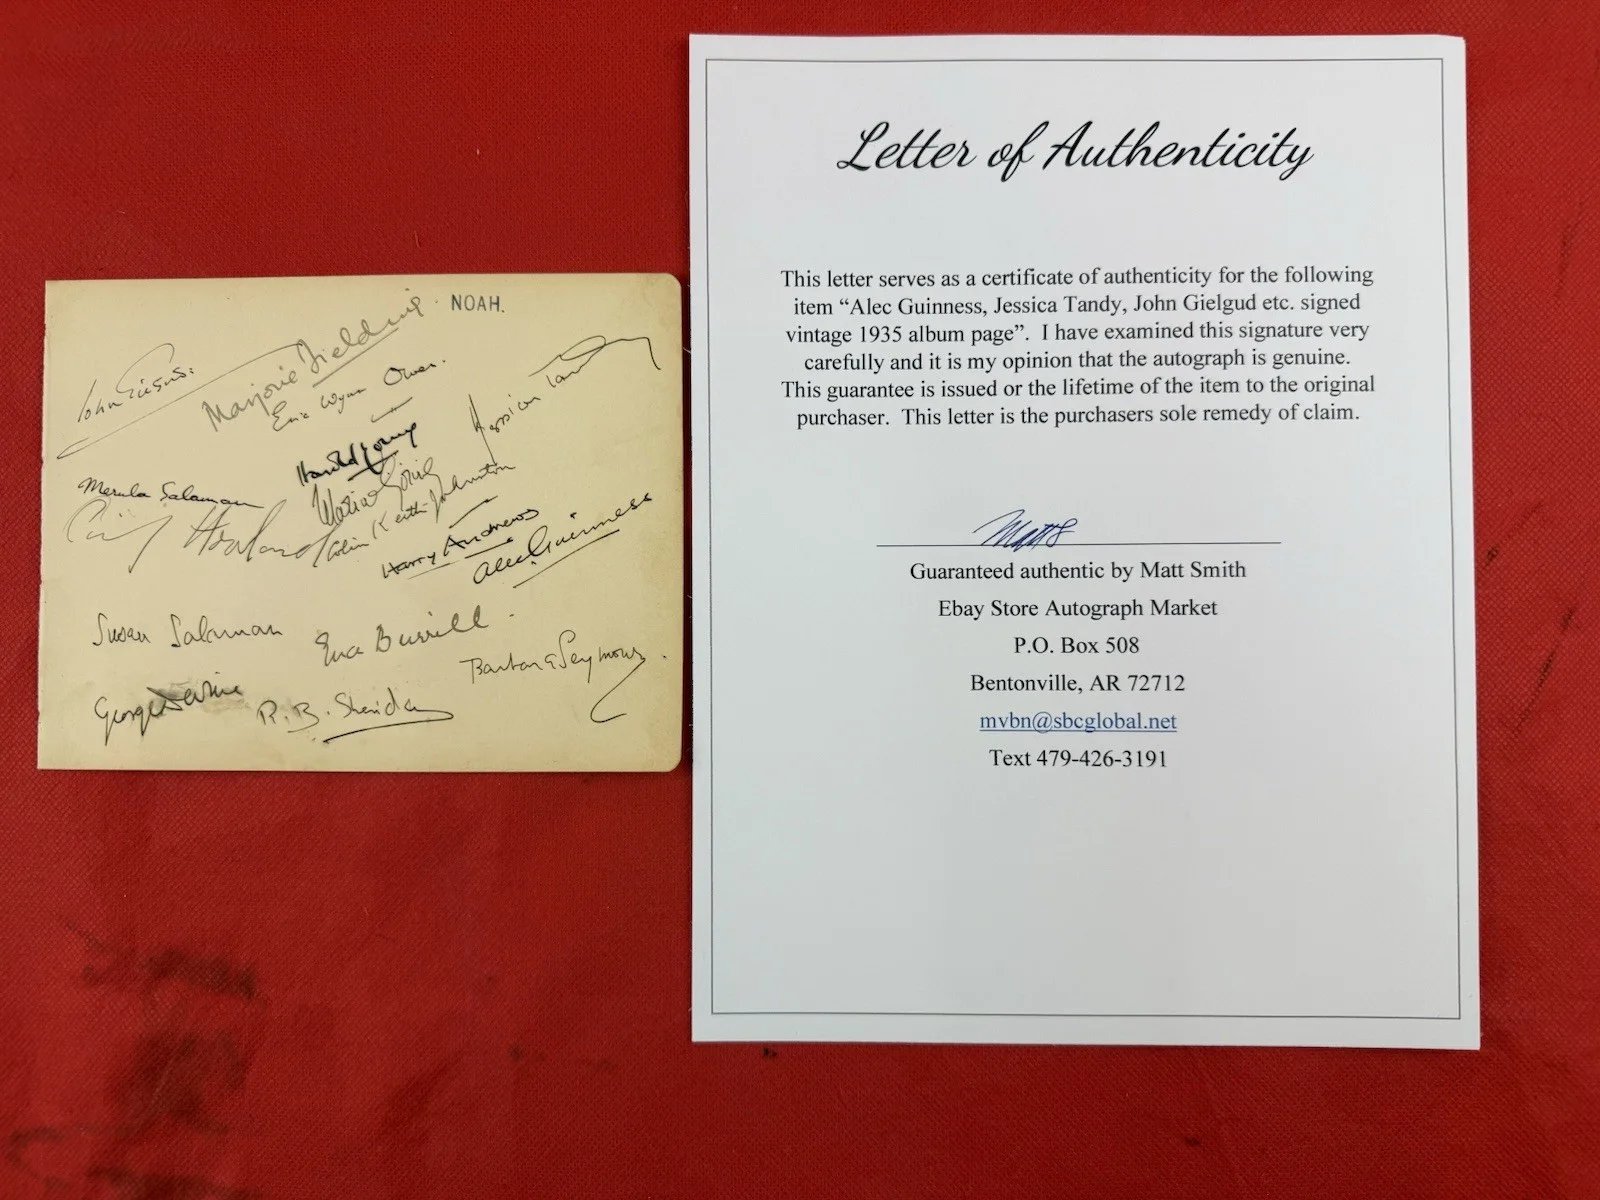 NOAH.
Marjorie Fielding
Eric Wynn Owen.
Jessica Tandy
Harold Young
Merula Salaman
Colin Keith-Johnston
Harry Andrews
Alec Guinness
Susan Salaman
Ena Burrill.
Barbara Seymour.
George Devine
R. B. Sheridan
Letter of Authenticity
This letter serves as a certificate of authenticity for the following
item “Alec Guinness, Jessica Tandy, John Gielgud etc. signed
vintage 1935 album page”. I have examined this signature very
carefully and it is my opinion that the autograph is genuine.
This guarantee is issued or the lifetime of the item to the original
purchaser. This letter is the purchasers sole remedy of claim.
Guaranteed authentic by Matt Smith
Ebay Store Autograph Market
P.O. Box 508
Bentonville, AR 72712
mvbn@sbcglobal.net
Text 479-426-3191